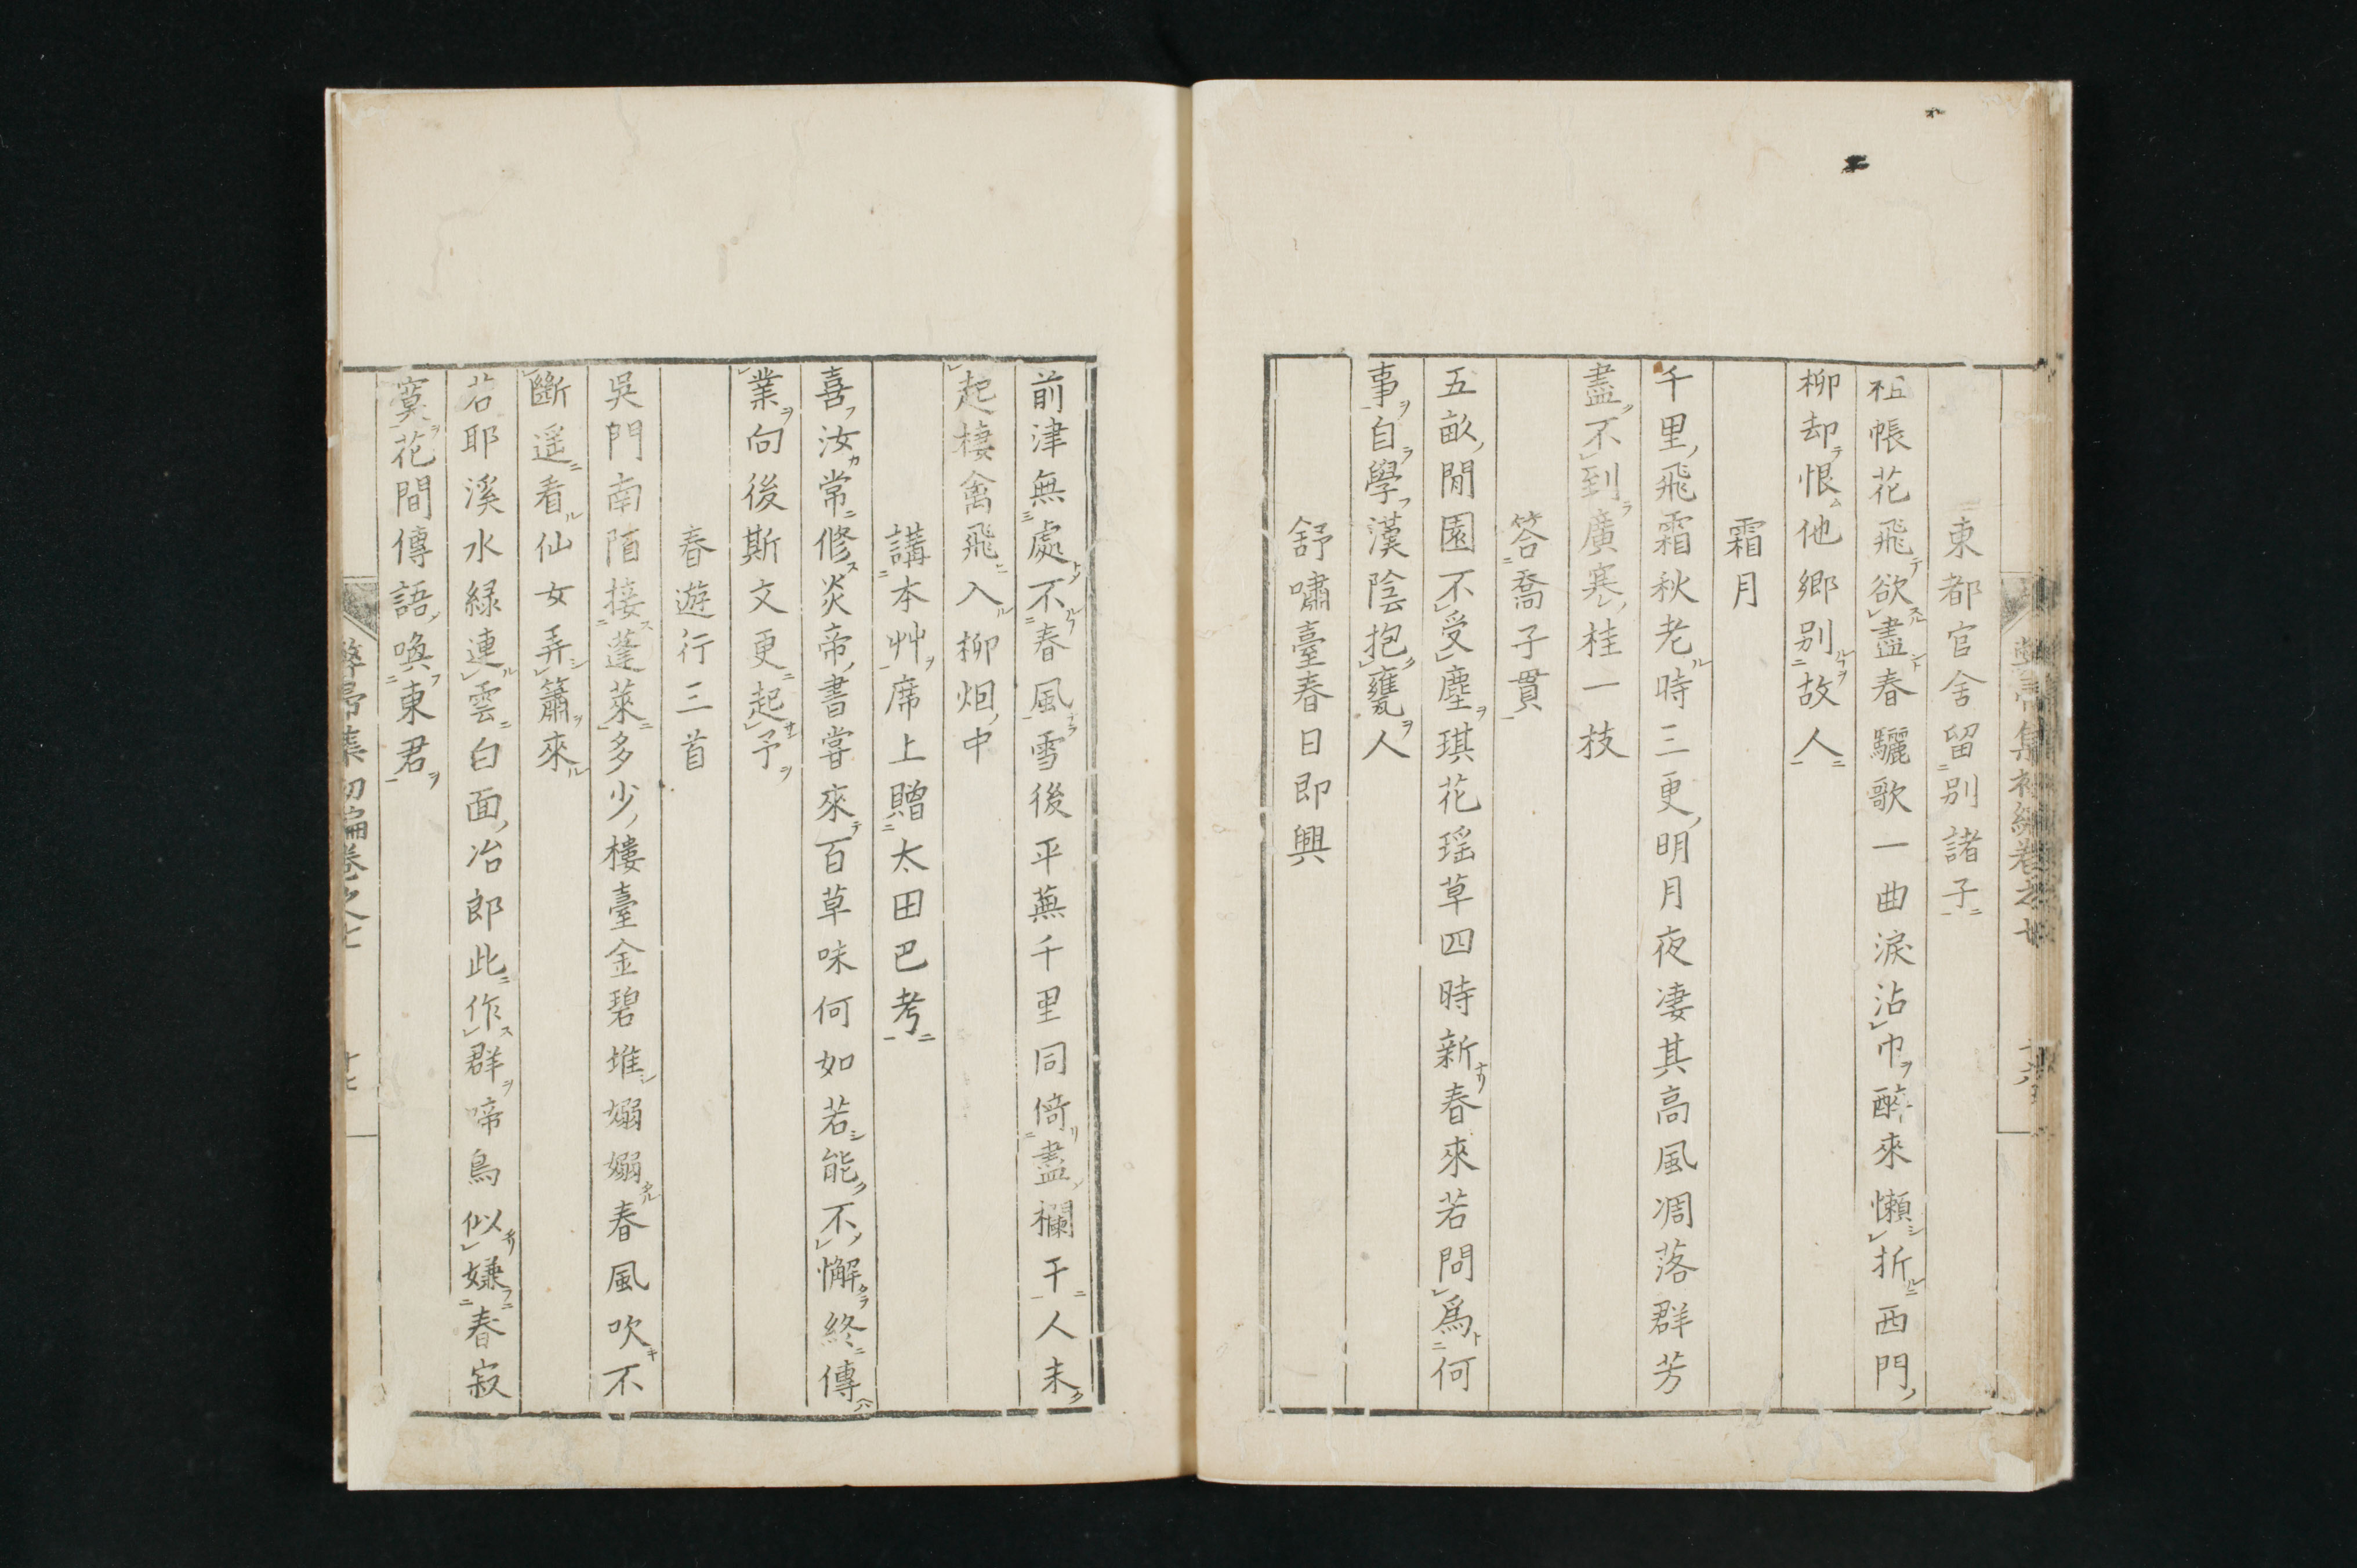 東都官舍留別諸子
祖帳花飛欲盡春驪歌一曲淚沾巾醉來懶折西門
柳却恨他鄉別故人
霜月
千里飛霜秋老時三更明月夜凄其高風凋落群芳
盡不到廣寒桂一枝
答喬子貫
五畝閒園不受塵琪花瑶草四時新春來若問爲何
事自學漢陰抱甕人
舒嘯臺春日即興
前津無處不春風雪後平蕪千里同倚盡欄干人未
起棲禽飛入柳烟中
講本艸席上贈太田巴考
喜汝常修炎帝書嘗來百草味何如若能不懈終傳
業向後斯文更起予
春遊行三首
吳門南陌接蓬萊多少樓臺金碧堆嫋嫋春風吹不
斷遥看仙女弄簫來
若耶溪水緑連雲白面冶郎此作群啼鳥似嫌春寂
寞花間傳語喚東君